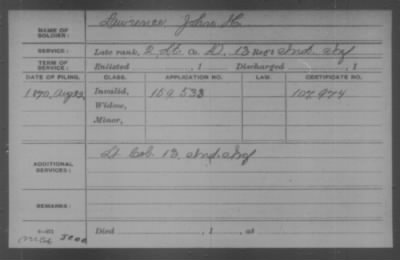 NAME OF SOLDIER: Lawrence John H.
SERVICE: Late rank, 2 Lt. Co. D, 13 Reg't Ind. Inf
TERM OF SERVICE: Enlisted , 1 Discharged , 1
DATE OF FILING. CLASS. APPLICATION NO. LAW. CERTIFICATE NO.
1870, Aug 22 Invalid, 159.533 107.974
Widow,
Minor,
ADDITIONAL SERVICES: Lt Col. 13. Ind. Inf
REMARKS:
Died , 1 , at